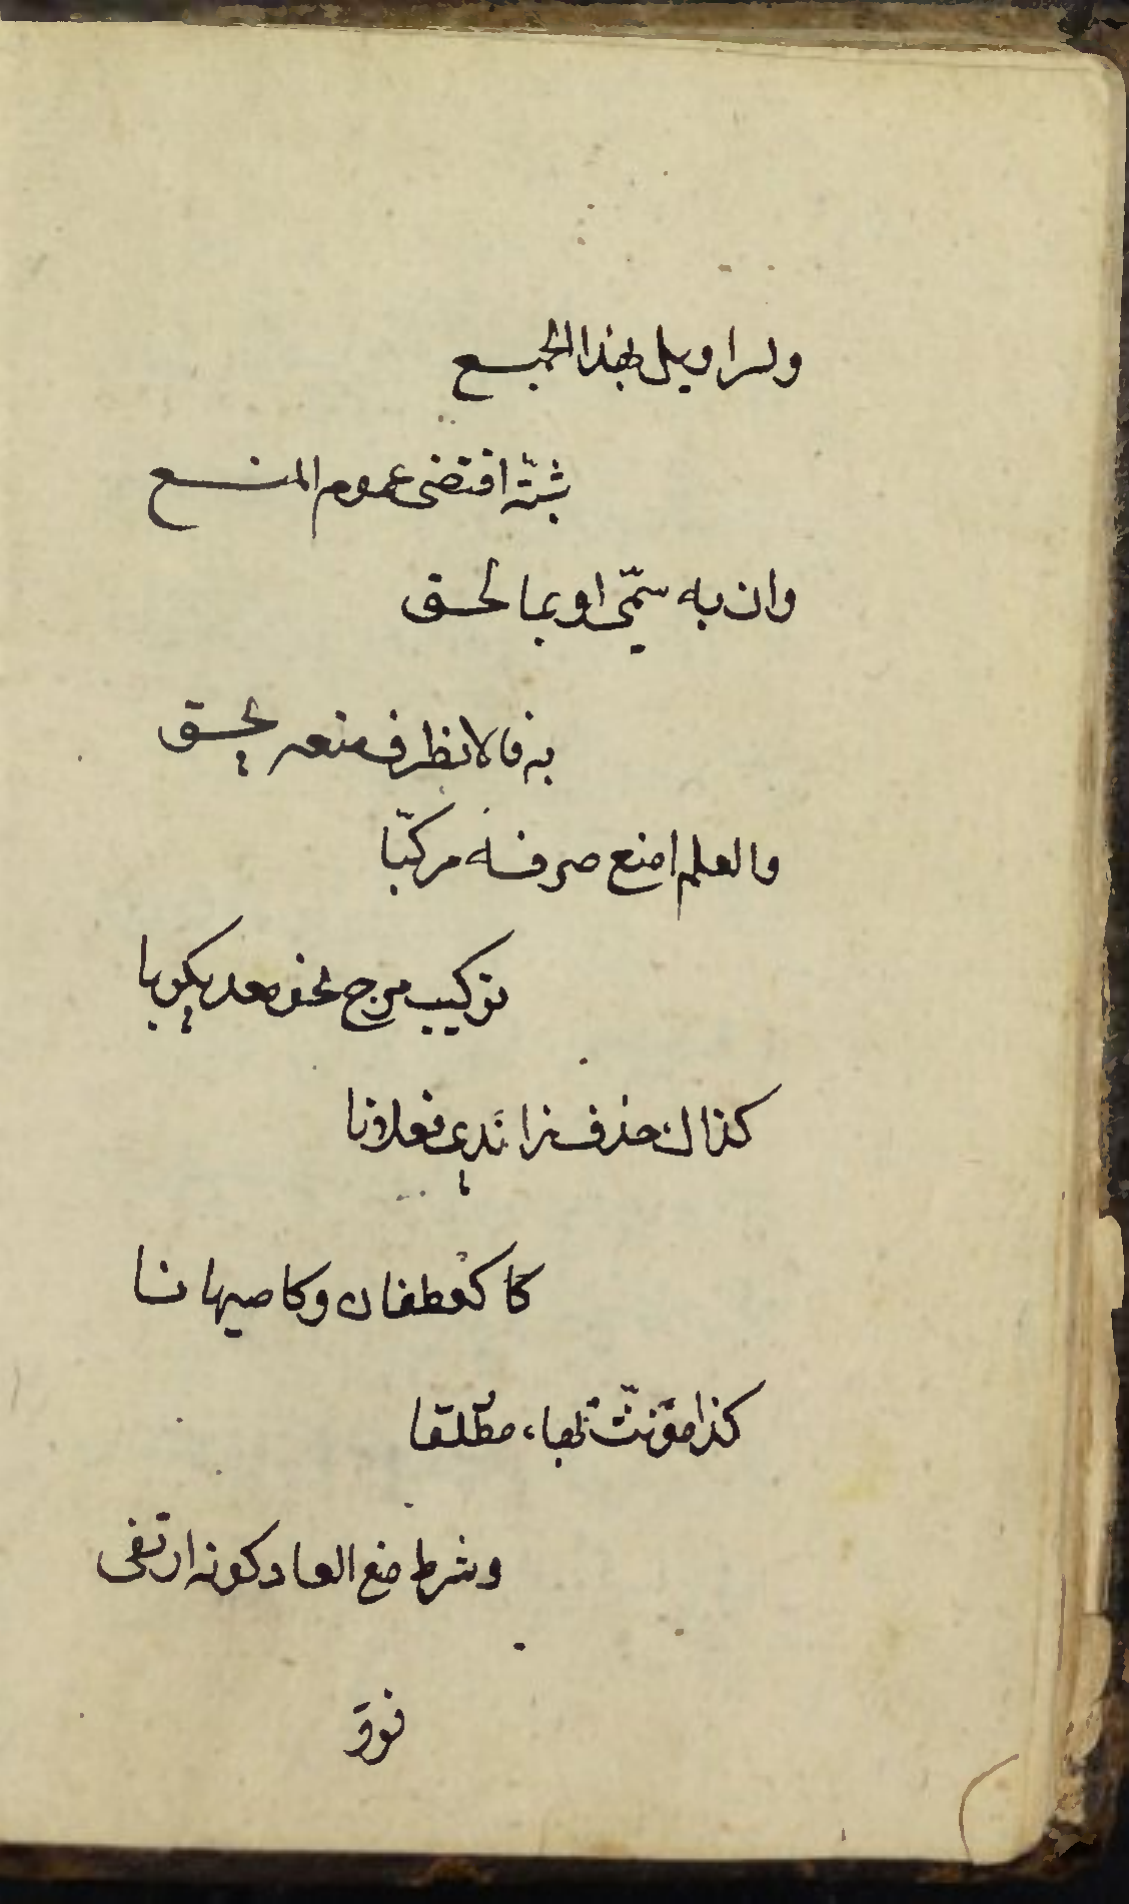 ولسراويل بهذا الجمع
شبه اقتضى عموم المنع
وان به سمّي او بما لحق
به فالانظراف منعه يحق
والعلم امنع صرفه مركّبا
تركيب مزج نحو معديكربا
كذاك حذف زائدي فعلانا
كا كغطفان وكاصبهانا
كذا مؤنث بهاء مطلقا
وشرط منع العار كونه ارتقى
فوق